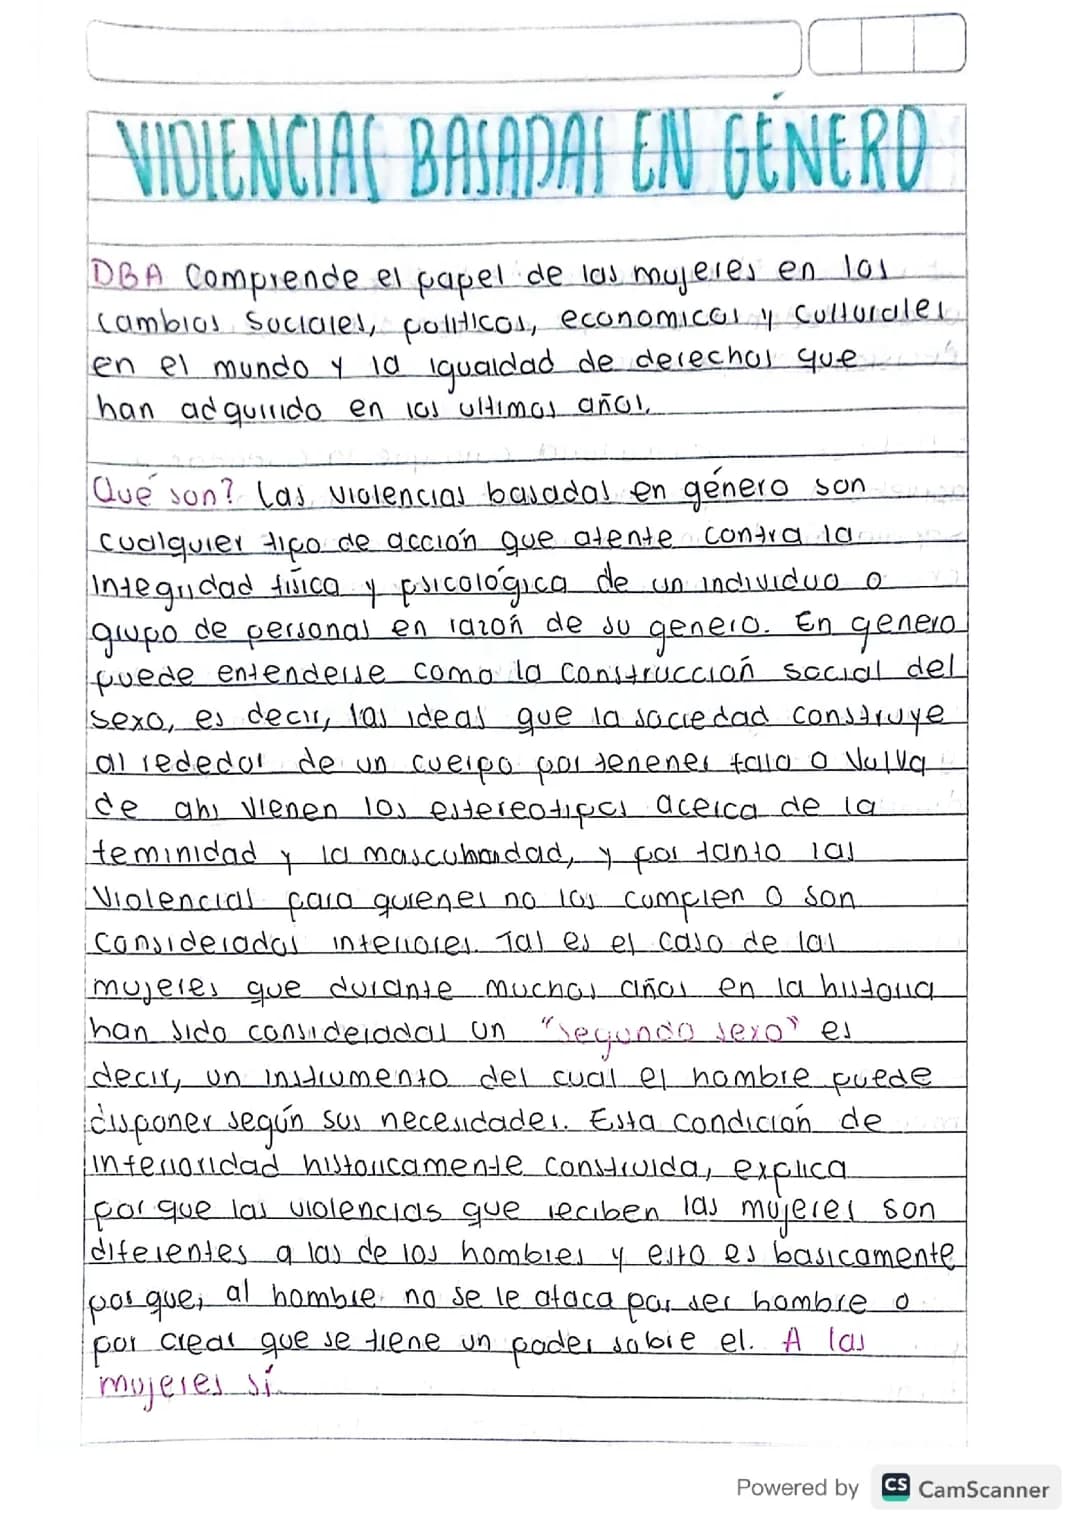 VIOLENCIAS BASADAS EN GÉNERO
DBA Comprende el papel de las mujeres en los
cambios sociales, politicos, economicos y culturales
en el mundo y la igualdad de derechos que
han adquirido en los ultimos años.
Qué son? Las violencias basadas en género son
cualquier tipo de acción que atente contra la
integridad física y psicológica de un individuo o
grupo de personas en razón de su genero. En genero
puede entenderse como la construcción social del
sexo, es decir, las ideas que la sociedad construye
al rededor de un cuerpo por tenener falo o Vulva
de ahi vienen los estereotipos acerca de la
feminidad y la masculinidad, y por tanto las
Violencias para quienes no los cumplen o son
considerados inferiores. Tal es el caso de las
mujeres que durante muchos años en la historia
han sido consideradas un "segundo sexo" es
decir, un instrumento del cual el hombre puede
disponer según sus necesidades. Esta condición de
inferioridad historicamente construida, explica
por que las violencias que reciben las mujeres son
diferentes a las de los hombres y esto es basicamente
por que; al hombre no se le ataca por ser hombre o
por creer que se tiene un poder sobre el. A las
mujeres sí.
Powered by CS CamScanner